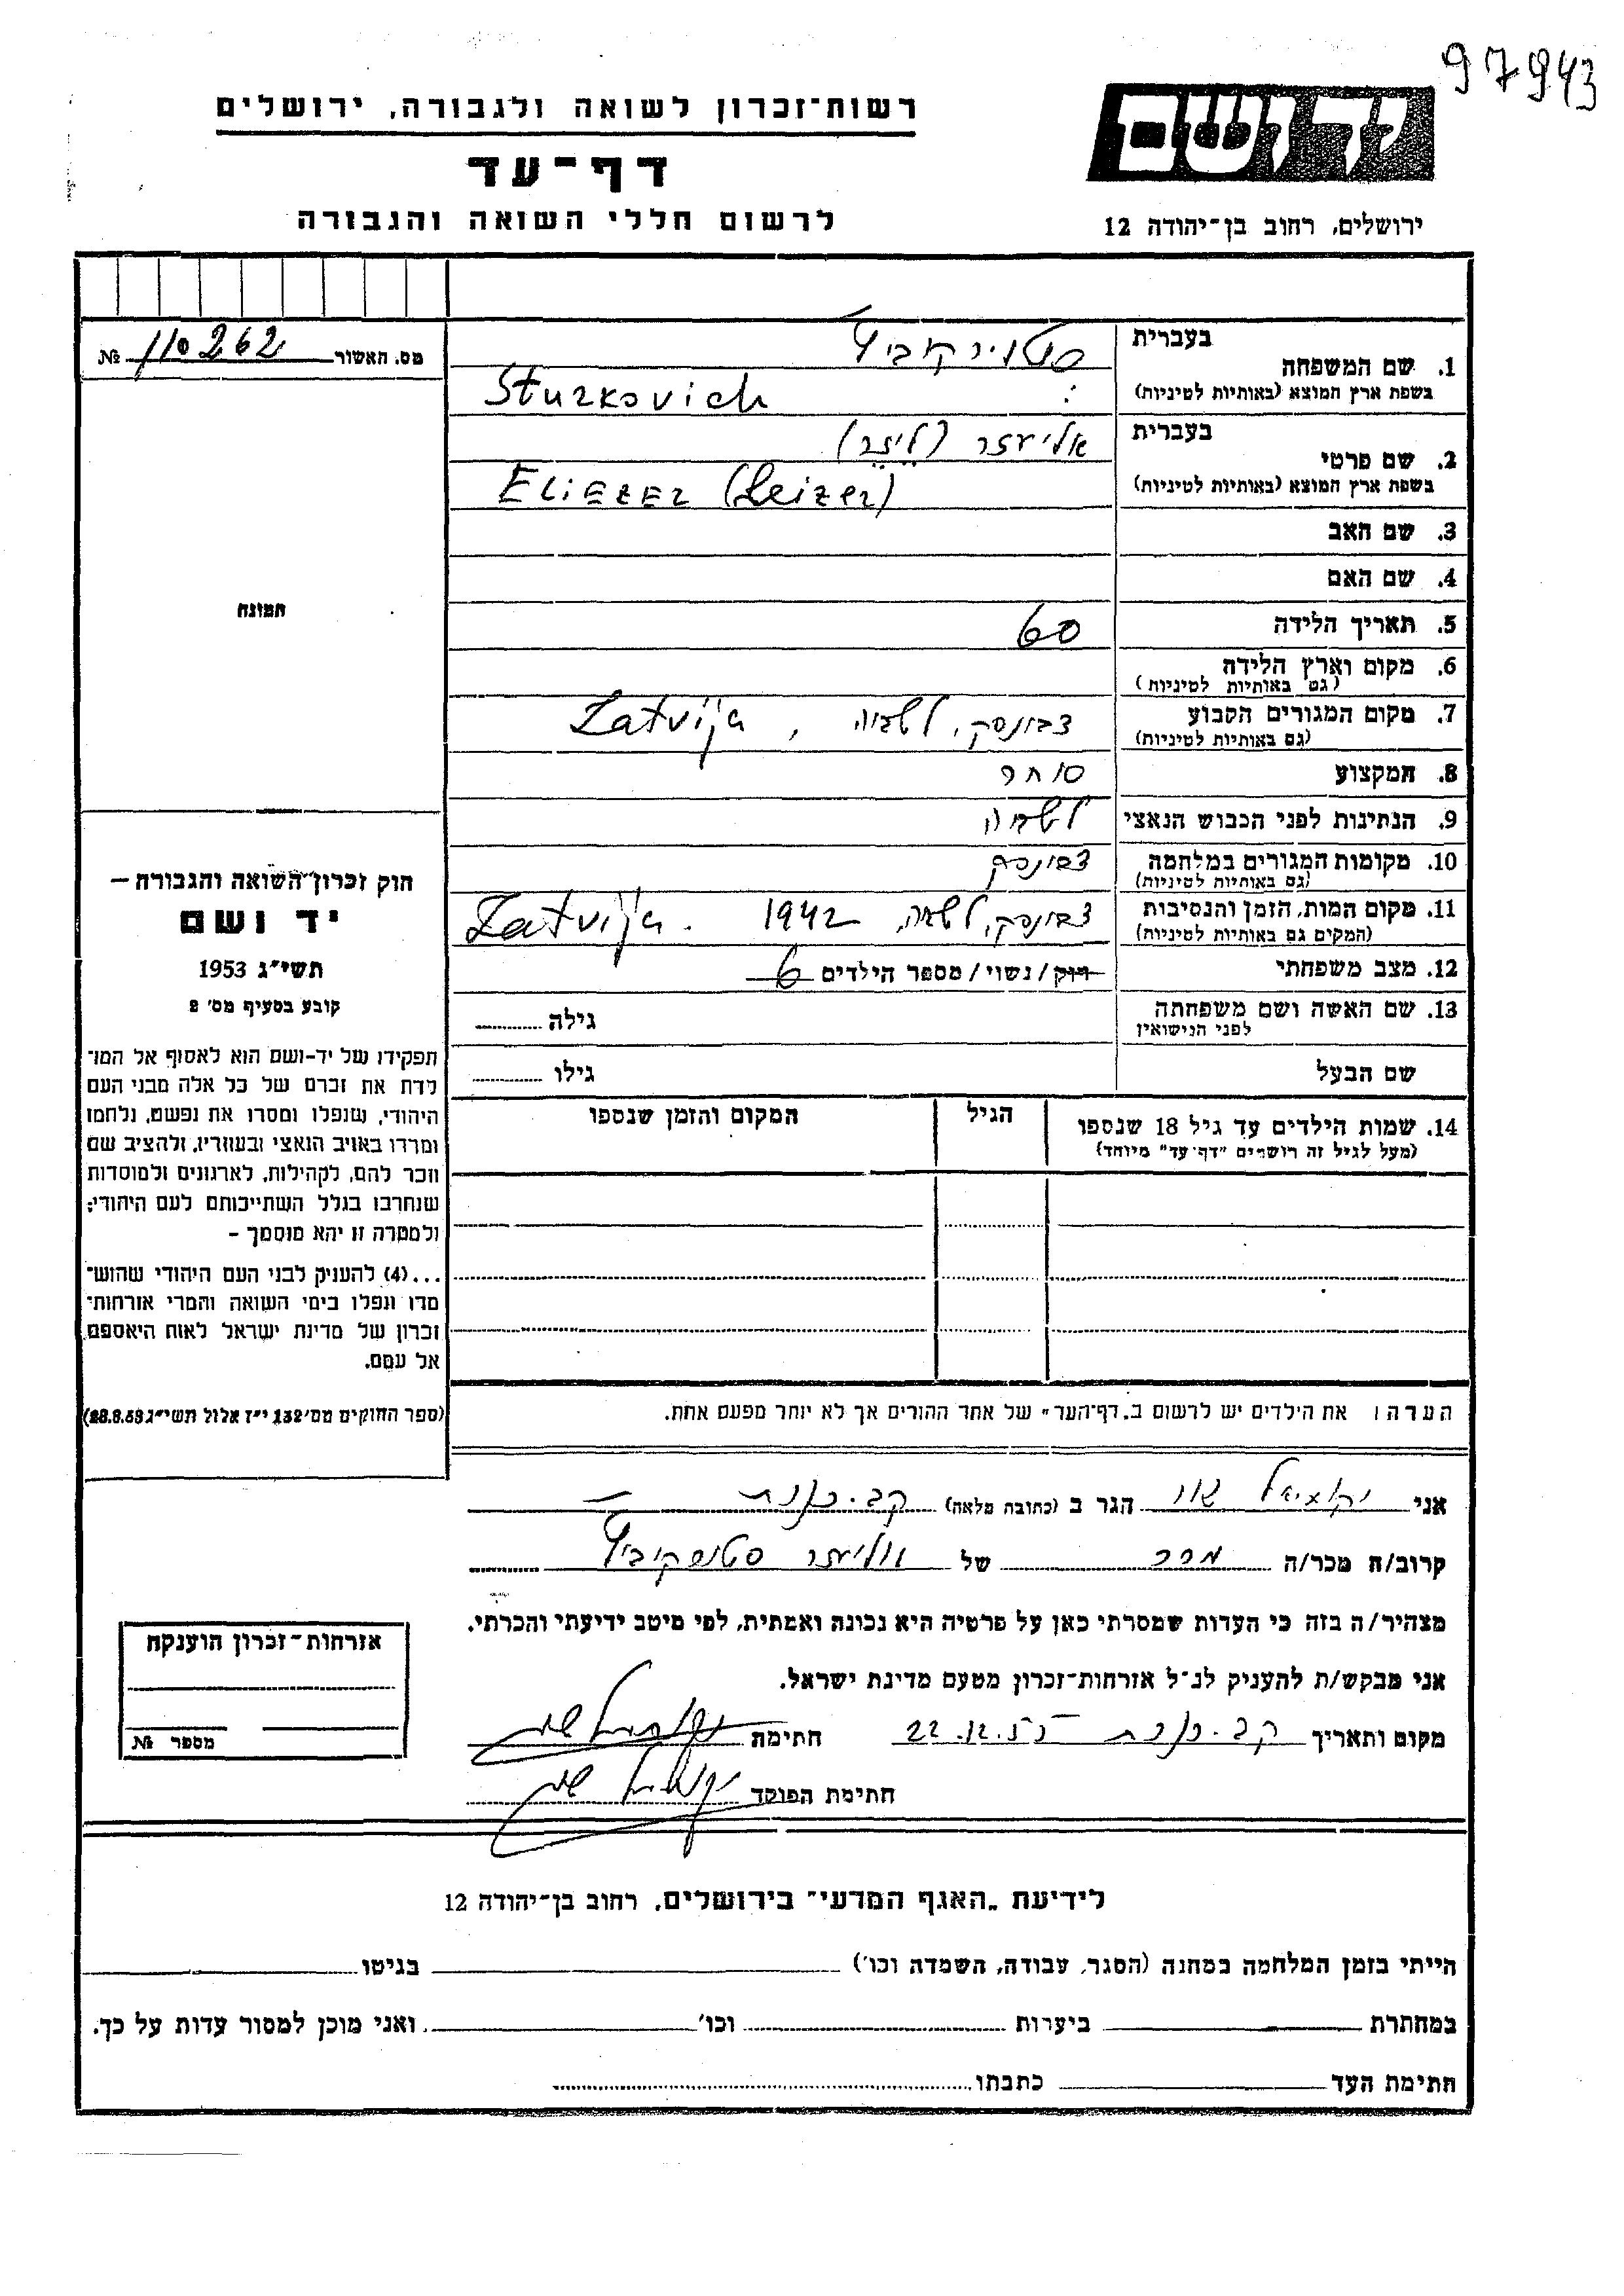 97943
רשות־זכרון לשואה ולגבורה, ירושלים
דף־עד
לרשום חללי השואה והגבורה
יד ושם
ירושלים, רחוב בן־יהודה 12
מס. האשור 110262 №
בעברית
1. שם המשפחה
בשפת ארץ המוצא (באותיות לטיניות)
Sturkovich
בעברית אליעזר (ליזר)
2. שם פרטי
בשפת ארץ המוצא (באותיות לטיניות) ELiEZER (Leizer)
3. שם האב
4. שם האם
5. תאריך הלידה 60
6. מקום וארץ הלידה
(גם באותיות לטיניות)
7. מקום המגורים הקבוע לטביה, Latvija
(גם באותיות לטיניות)
8. המקצוע סוחר
9. הנתינות לפני הכבוש הנאצי לטביה
10. מקומות המגורים במלחמה
(גם באותיות לטיניות)
11. מקום המות, הזמן והנסיבות לטביה, 1942. Latvija
(המקום גם באותיות לטיניות)
12. מצב משפחתי רווק/נשוי/מספר הילדים 6
13. שם האשה ושם משפחתה גילה
לפני הנישואין
שם הבעל גילו
14. שמות הילדים עד גיל 18 שנספו הגיל המקום והזמן שנספו
(מעל לגיל זה רושמים "דף־עד" מיוחד)
הערה: את הילדים יש לרשום ב„דף־העד" של אחד ההורים אך לא יותר מפעם אחת.
תמונה
חוק זכרון השואה והגבורה —
יד ושם
תשי"ג 1953
קובע בסעיף מס' 2
תפקידו של יד-ושם הוא לאסוף אל המו־
לדת את זכרם של כל אלה מבני העם
היהודי, שנפלו ומסרו את נפשם, נלחמו
ומרדו באויב הנאצי ובעוזריו, ולהציב שם
וזכר להם, לקהילות, לארגונים ולמוסדות
שנחרבו בגלל השתייכותם לעם היהודי;
ולמטרה זו יהא מוסמך —
...(4) להעניק לבני העם היהודי שהוש־
מדו ונפלו בימי השואה והמרי אזרחות־
זכרון של מדינת ישראל לאות היאספם
אל עמם.
(ספר החוקים מס' 132, י"ז אלול תשי"ג 28.8.53)
אני הגר ב (כתובת מלאה)
קרוב/ה מכר/ה מכר של
מצהיר/ה בזה כי העדות שמסרתי כאן על פרטיה היא נכונה ואמתית, לפי מיטב ידיעתי והכרתי.
אני מבקש/ת להעניק לנ"ל אזרחות־זכרון מטעם מדינת ישראל.
מקום ותאריך חתימת
חתימת הפוקד
אזרחות־זכרון הוענקה
מספר №
לידיעת „האגף המדעי" בירושלים, רחוב בן־יהודה 12
הייתי בזמן המלחמה במחנה (הסגר, עבודה, השמדה וכו') בגיטו
במחתרת ביערות וכו' ואני מוכן למסור עדות על כך.
חתימת העד כתבתו